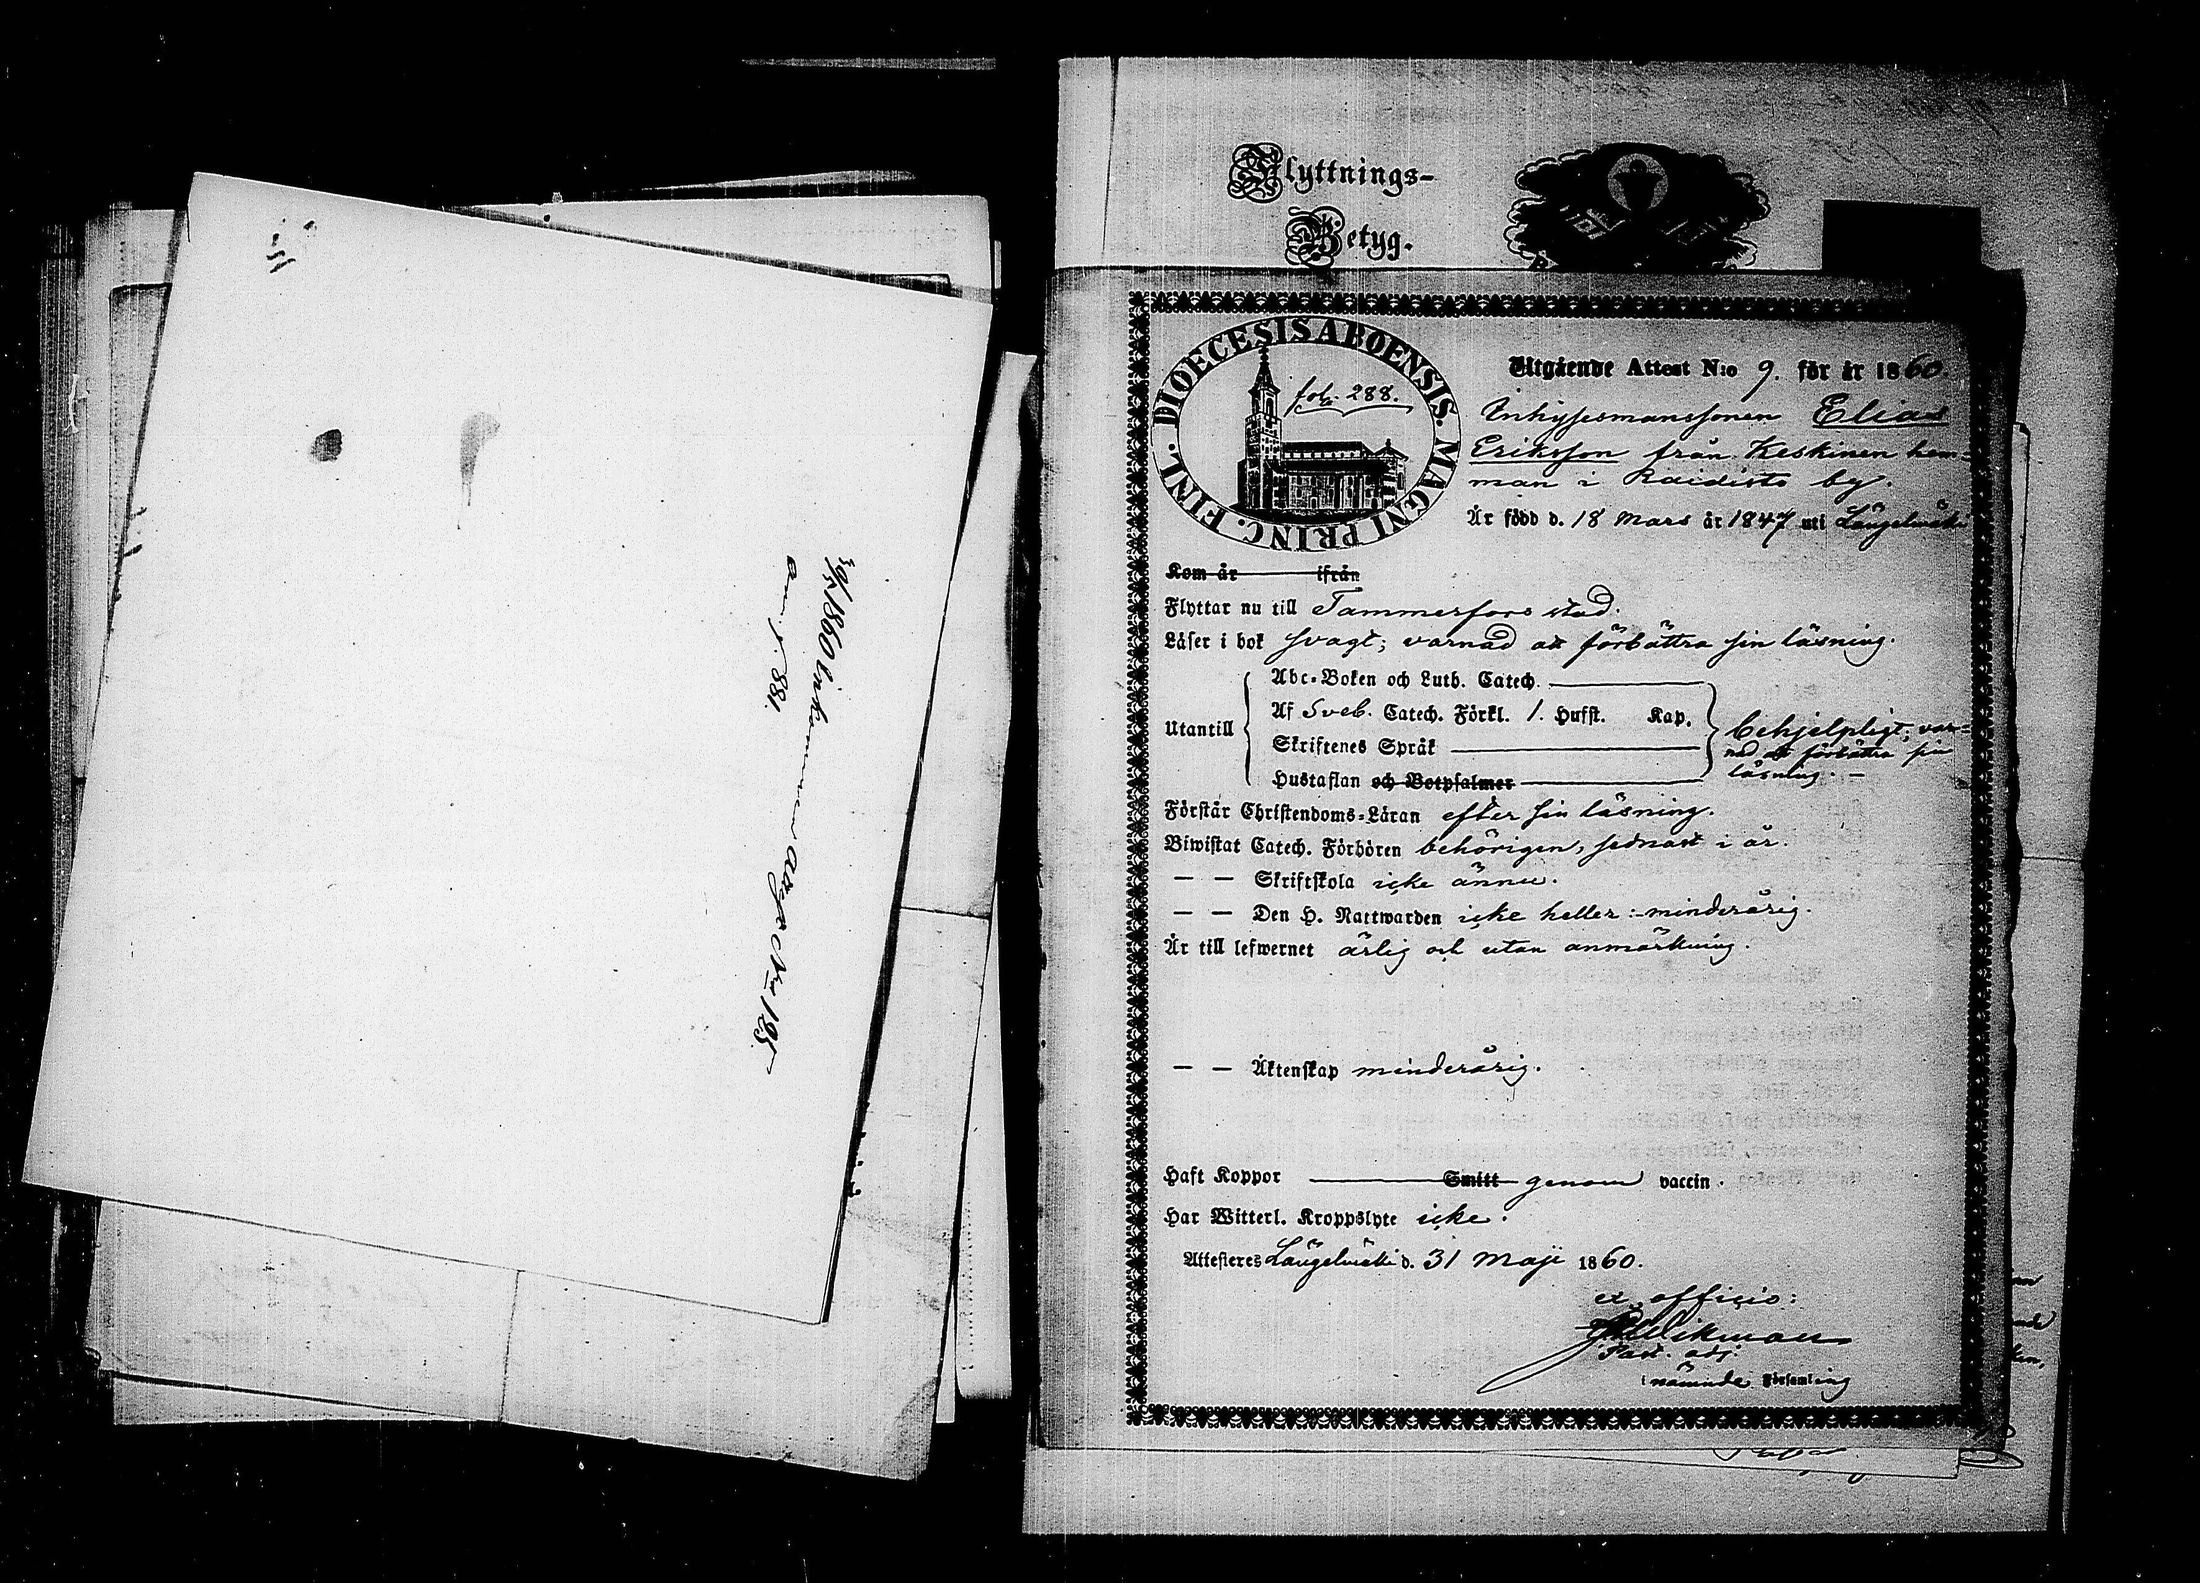 39/5 1860 Inkommen attest No 125
pag. 881.
Flyttnings-
Betyg.
DIOECESIS ABOENSIS. MAGNI PRINC. FINL.
fol. 288.
Utgående Attest N:o 9. för år 1860.
Inhysesmanssonen Elias
Eriksson från Keskinen hem-
man i Raidisto by.
Är född d. 18 Mars år 1847 uti Längelmäki
Kom år ifrån
Flyttar nu till Tammerfors stad.
Läser i bok svagt; varnad att förbättra sin läsning.
Abc-Boken och Luth. Catech.
Utantill Af Sveb. Catech. Förkl. 1. Hufst. Kap.
Skriftenes Språk
Hustaflan och Botpsalmer
behjelpligt; var-
nad att förbättra sin
läsning. –
Förstår Christendoms-Läran efter sin läsning.
Biwistat Catech. Förhören behörigen, sednast i år.
— — Skriftskola icke ännu.
— — Den H. Nattwarden icke heller: minderårig.
Är till lefwernet ärlig och utan anmärkning.
— — Äktenskap minderårig.
Haft Koppor Smitt genom vaccin.
Har Witterl. Kroppslyte icke.
Attesteres Längelmäki d. 31 Maji 1860.
ex officio:
Wikman
Past. adj.
i nämnde Församling